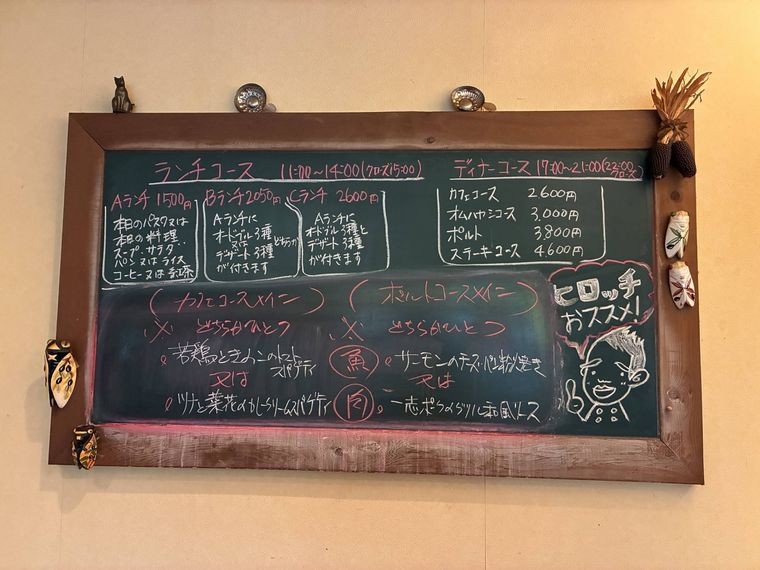 ランチコース 11:00~14:00(クローズ15:00)
Aランチ 1500円
本日のパスタ又は
本日の料理
スープ・サラダ
パン又はライス
コーヒー又は紅茶
Bランチ2050円
Aランチに
オードブル3種
又は
デザート3種
どちらか
が付きます
Cランチ 2600円
Aランチに
オードブル3種と
デザート3種
が付きます
ディナーコース 17:00~21:00(22:00クローズ)
カフェコース 2600円
オムハヤシコース 3,000円
ポルト 3,800円
ステーキコース 4600円
ヒロッチ
おススメ!
(カフェコースメイン)
※ どちらかひとつ
若鶏ときのこのトマト
スパゲティ
又は
ツナと菜花のクリームスパゲティ
(ポルトコースメイン)
※ どちらかひとつ
魚 サーモンのチーズパン粉焼き
又は
肉 一志ポークのグリル和風ソース